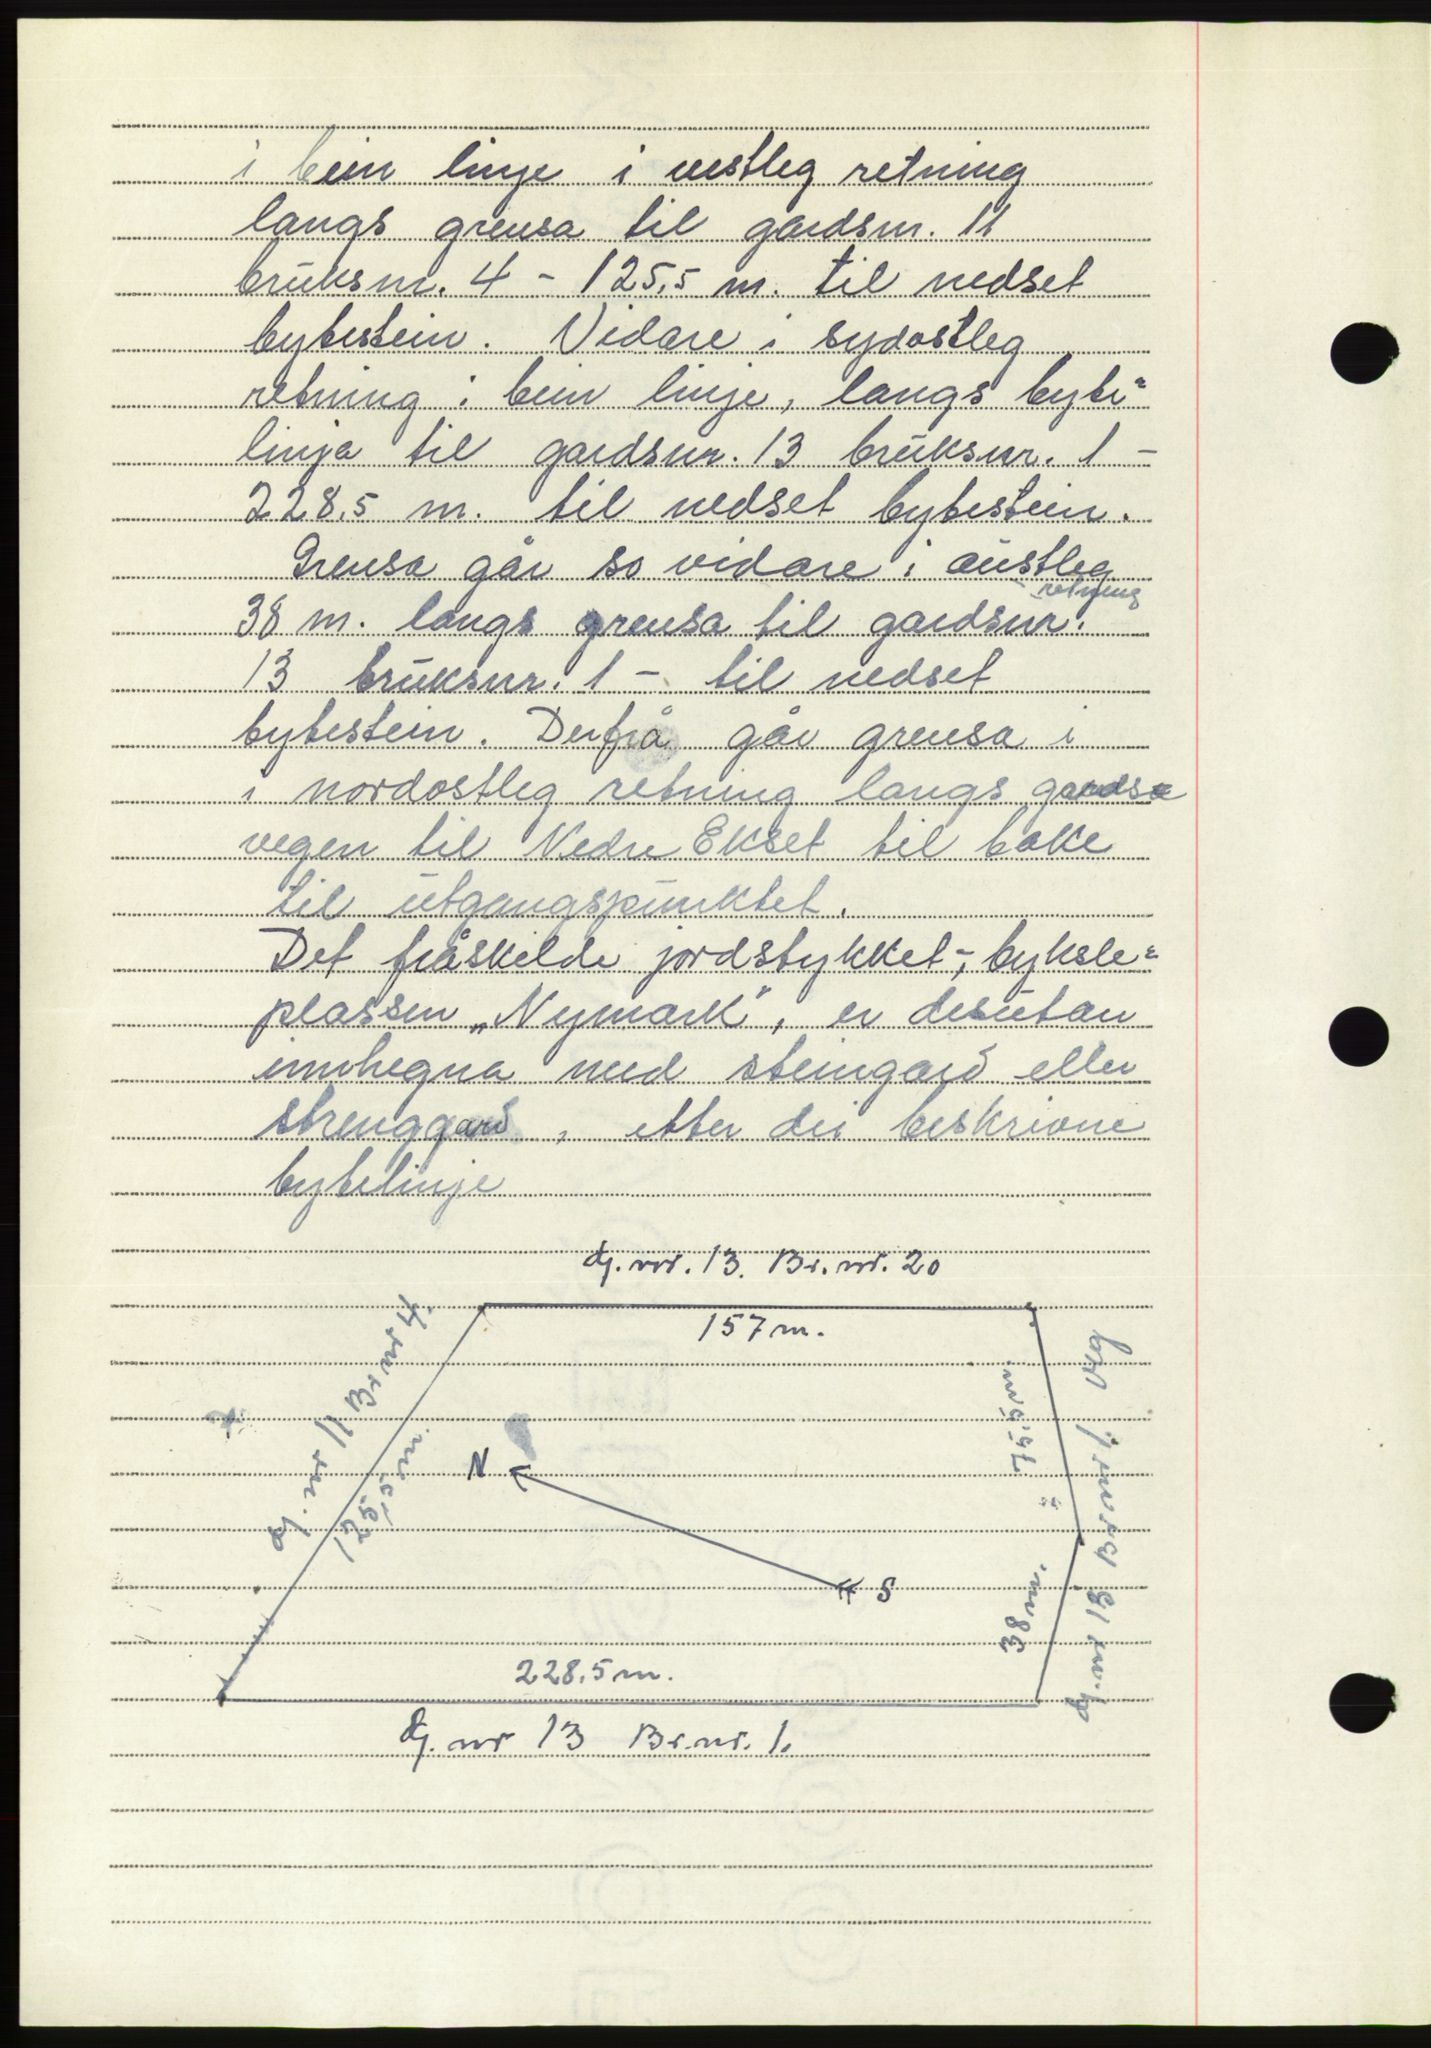 i bein linje i vestleg retning
langs grensa til gardsnr. 11
bruksnr. 4 - 125,5 m. til nedset
bytestein. Vidare i sydostleg
retning i bein linje, langs byte=
linja til gardsnr. 13 bruksnr. 1 -
228,5 m. til nedset bytestein.
Grensa går so vidare i austleg
retning
38 m. langs grensa til gardsnr.
13 bruksnr. 1 - til nedset
bytestein. Derfrå går grensa i
i nordostleg retning langs gards=
vegen til Nedre Ekset til bake
til utgangspunktet.
Det fråskilde jordstykket -, byksle=
plassen „Nymark", er desutan
innhegna med steingard eller
strenggard, etter dei beskrivne
bytelinje
G. nr. 13. Br. nr. 20
157 m.
G. nr 11 Br nr 4.
125,5 m.
75,5 m
38 m.
G. nr 13 Br nr 1. veg
N
S
228,5 m.
G. nr 13 Br. nr. 1.